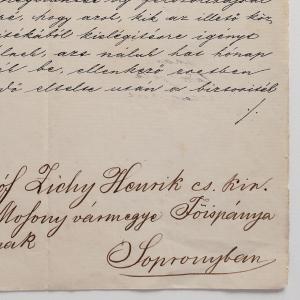 hogy azok, kik az illető köz
kielégítésre igénye
azt nálunk hat hónap
be, ellenkező esetben
eltelte után a biztosíték
./.
Zichy Henrik cs. kir.
Mosony vármegye Főispánya
nak
Sopronyban